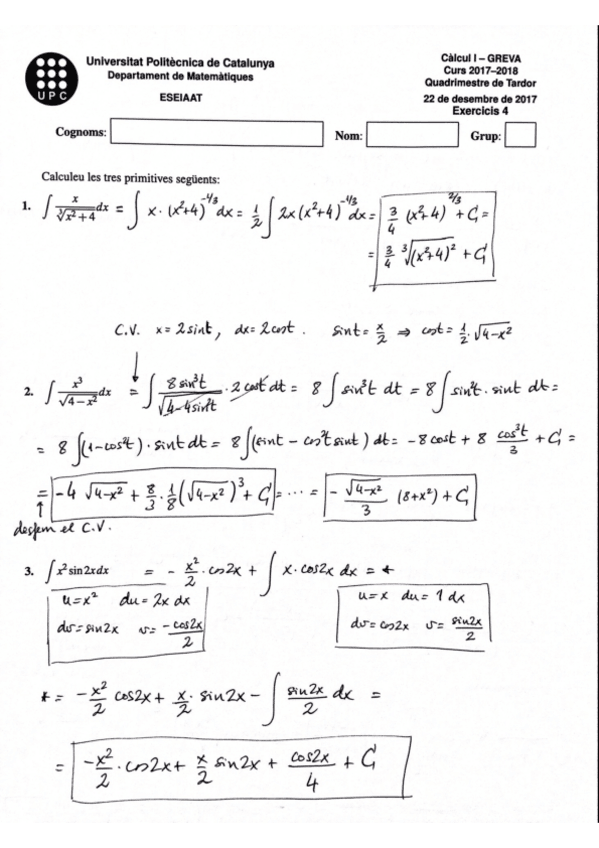 UPC
Universitat Politècnica de Catalunya
Departament de Matemàtiques
ESEIAAT
Càlcul I – GREVA
Curs 2017–2018
Quadrimestre de Tardor
22 de desembre de 2017
Exercicis 4
Cognoms: Nom: Grup:
Calculeu les tres primitives següents:
1. ∫ x/∛(x²+4) dx = ∫ x·(x²+4)^(-1/3) dx = 1/2 ∫ 2x(x²+4)^(-1/3) dx = 3/4 (x²+4)^(2/3) + C =
= 3/4 ∛((x²+4)²) + C
C.V. x = 2sint, dx = 2cost. sint = x/2 ⇒ cost = 1/2·√(4-x²)
2. ∫ x³/√(4−x²) dx = ∫ 8sin³t/√(4-4sin²t) · 2cost dt = 8 ∫ sin³t dt = 8 ∫ sin²t·sint dt =
= 8 ∫(1-cos²t)·sint dt = 8 ∫(sint - cos²t sint) dt = -8cost + 8 cos³t/3 + C =
= -4 √(4-x²) + 8/3·1/8(√(4-x²))³ + C = ··· = - √(4-x²)/3 (8+x²) + C
desfem el C.V.
3. ∫ x² sin 2x dx = - x²/2 · cos2x + ∫ x·cos2x dx = *
u=x² du=2x dx
dv=sin2x v= -cos2x/2
u=x du=1 dx
dv=cos2x v= sin2x/2
* = -x²/2 cos2x + x/2· sin2x - ∫ sin2x/2 dx =
= -x²/2 · cos2x + x/2 sin2x + cos2x/4 + C